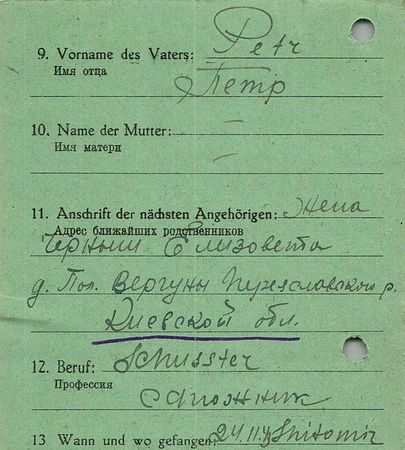 9. Vorname des Vaters: Petr
Имя отца
Петр
10. Name der Mutter: —
Имя матери —
11. Anschrift der nächsten Angehörigen: Жена
Адрес ближайших родственников
Черныш Елизовета
д. Пол. Вергуны Переяславского р.
Киевской обл.
12. Beruf: Schusster
Профессия
сапожник
13 Wann und wo gefangen: 24.11. Shitomir